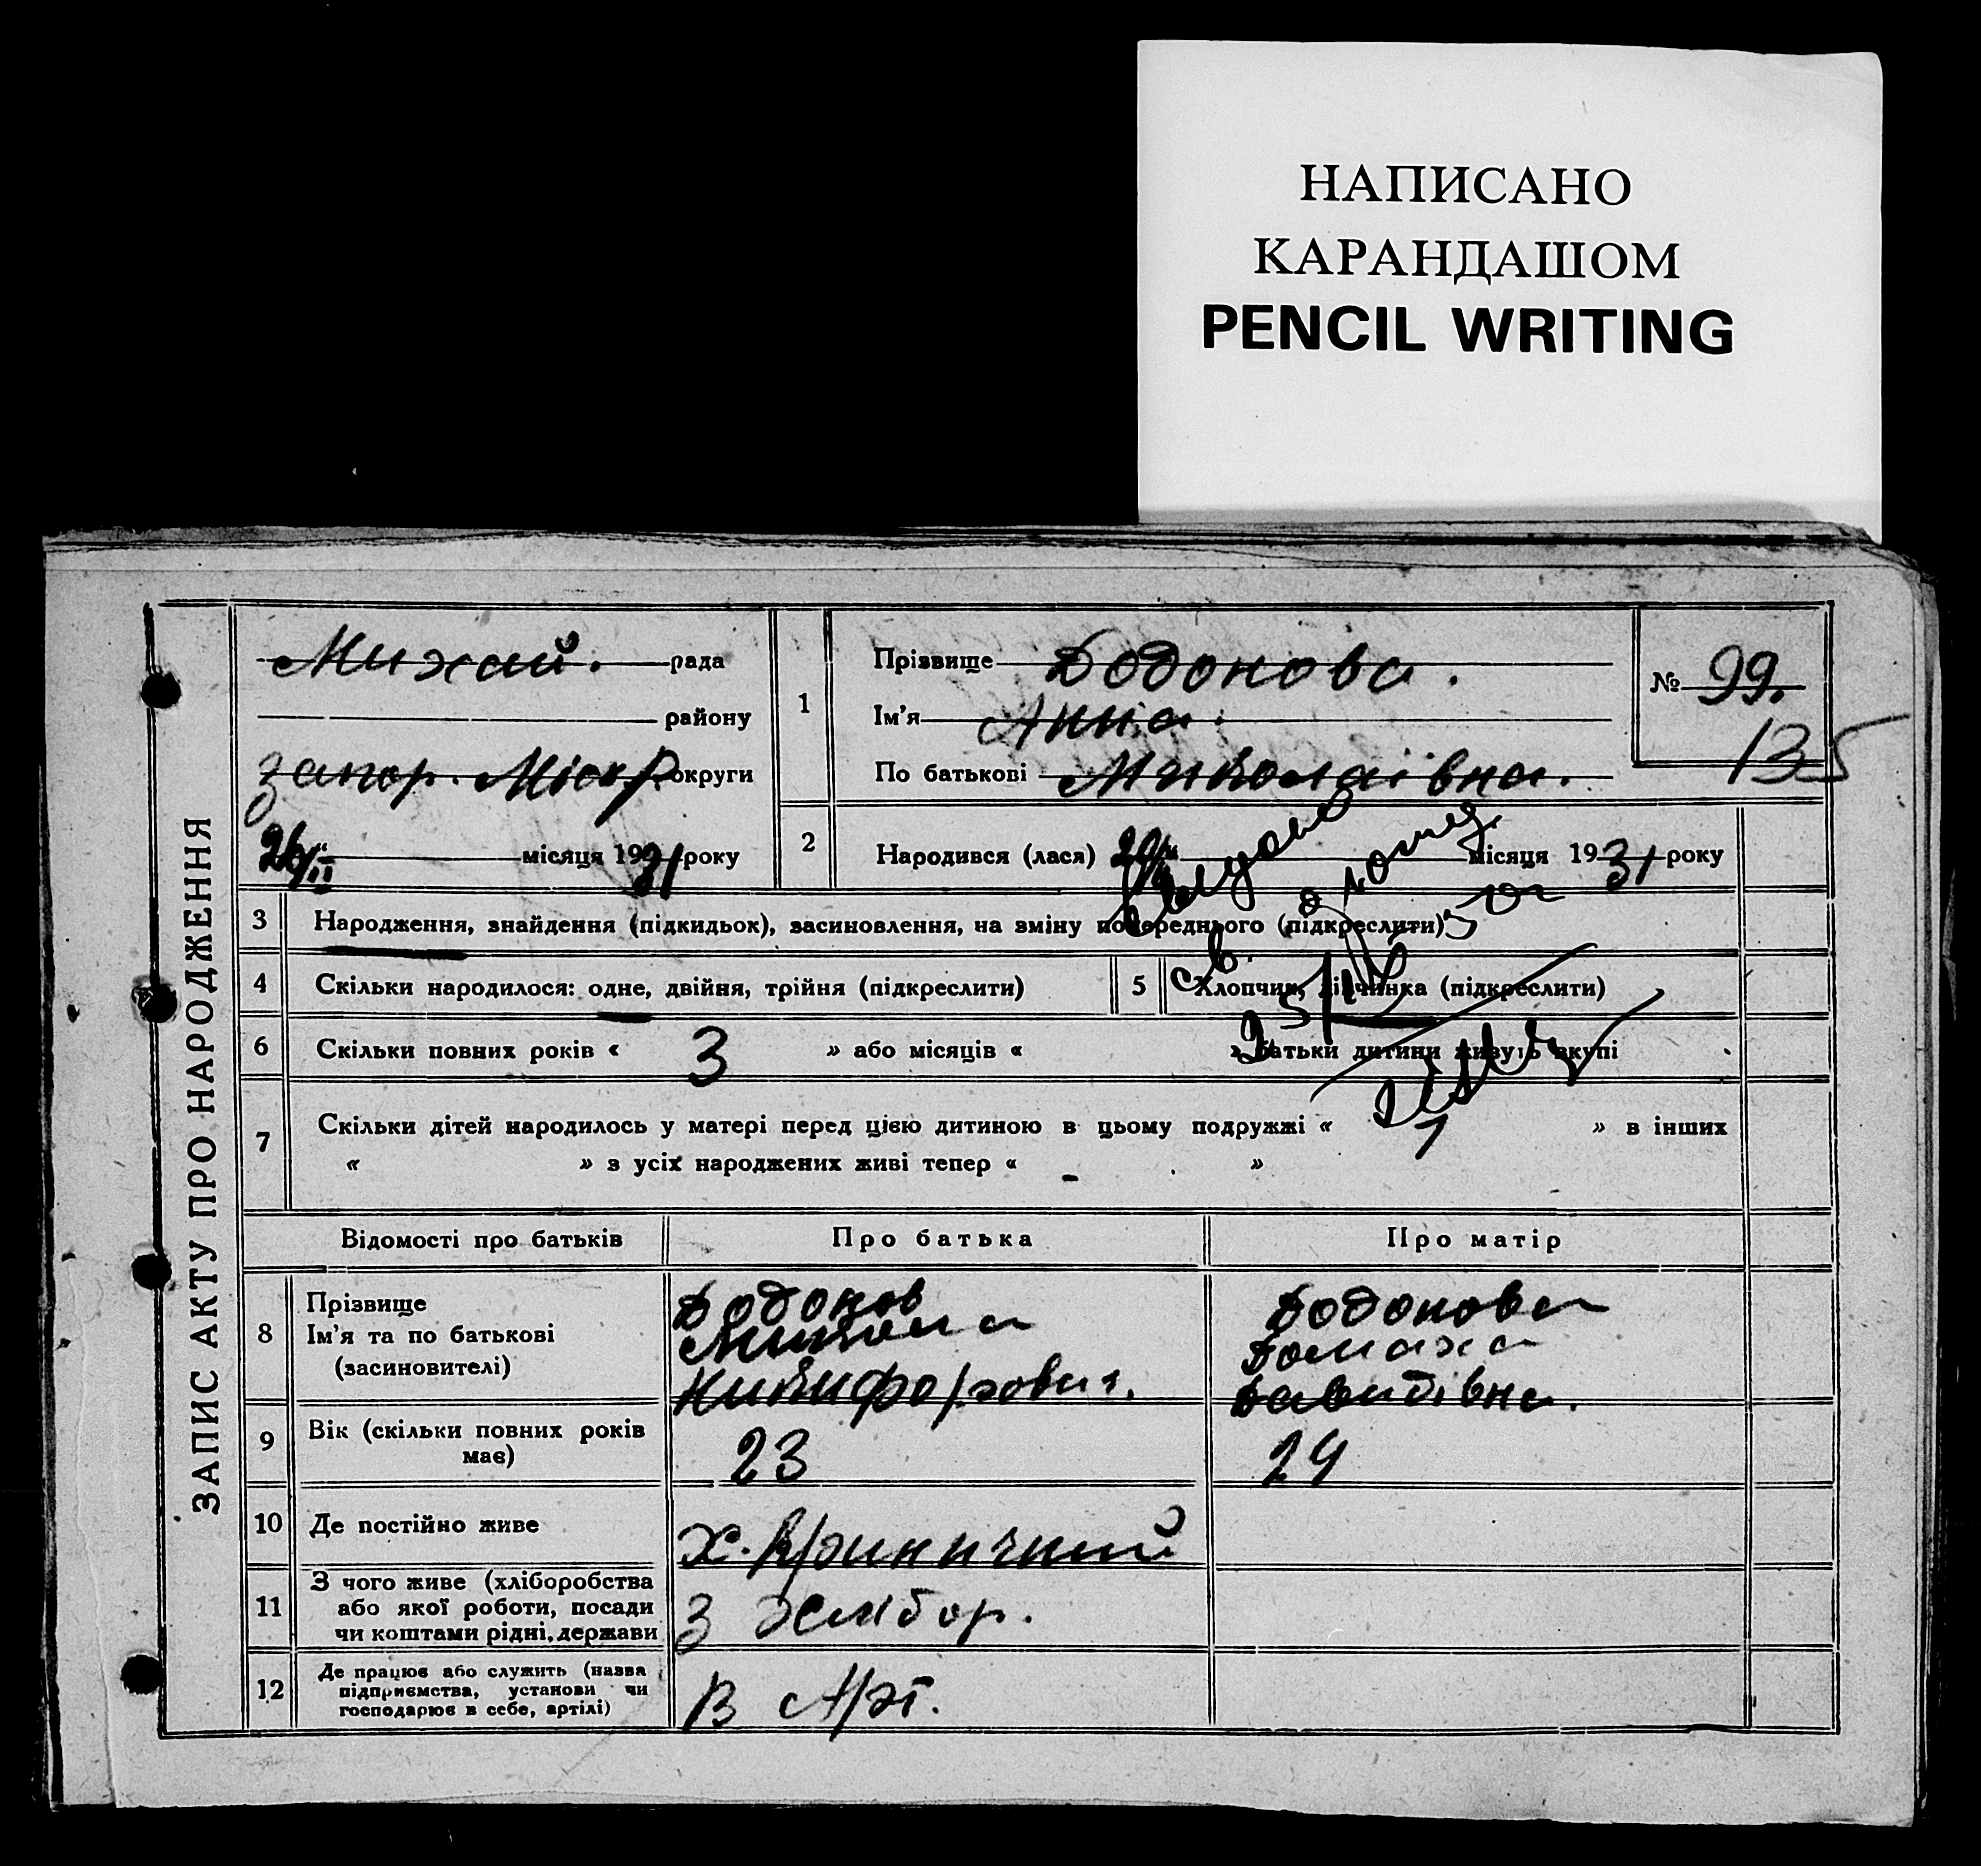 НАПИСАНО
КАРАНДАШОМ
PENCIL WRITING
ЗАПИС АКТУ ПРО НАРОДЖЕННЯ
Михай. рада
району
запор. Міськр округи
26/II місяця 1931 року
1
Прізвище Додонова.
Ім'я Анна.
По батькові Миколаївна.
№ 99.
135
2 Народився (лася) 20/II місяця 1931 року
3 Народження, знайдення (підкидьок), засиновлення, на зміну попереднього (підкреслити)
4 Скільки народилося: одне, двійня, трійня (підкреслити)
5 Хлопчик, дівчинка (підкреслити)
6 Скільки повних років « 3 » або місяців « » батьки дитини живуть вкупі
7 Скільки дітей народилось у матері перед цією дитиною в цьому подружжі « 1 » в інших
« » з усіх народжених живі тепер « - »
Відомості про батьків Про батька Про матір
8 Прізвище
Ім'я та по батькові
(засиновителі)
Додонов
Микола
Никифорович.
Додонова
Домаха
Давидівна.
9 Вік (скільки повних років
має)
23 24
10 Де постійно живе х. Криничний
11 З чого живе (хліборобства
або якої роботи, посади
чи коштами рідні, держави
З хлібор.
12 Де працює або служить (назва
підприємства, установи чи
господарює в себе, артілі)
В Арт.